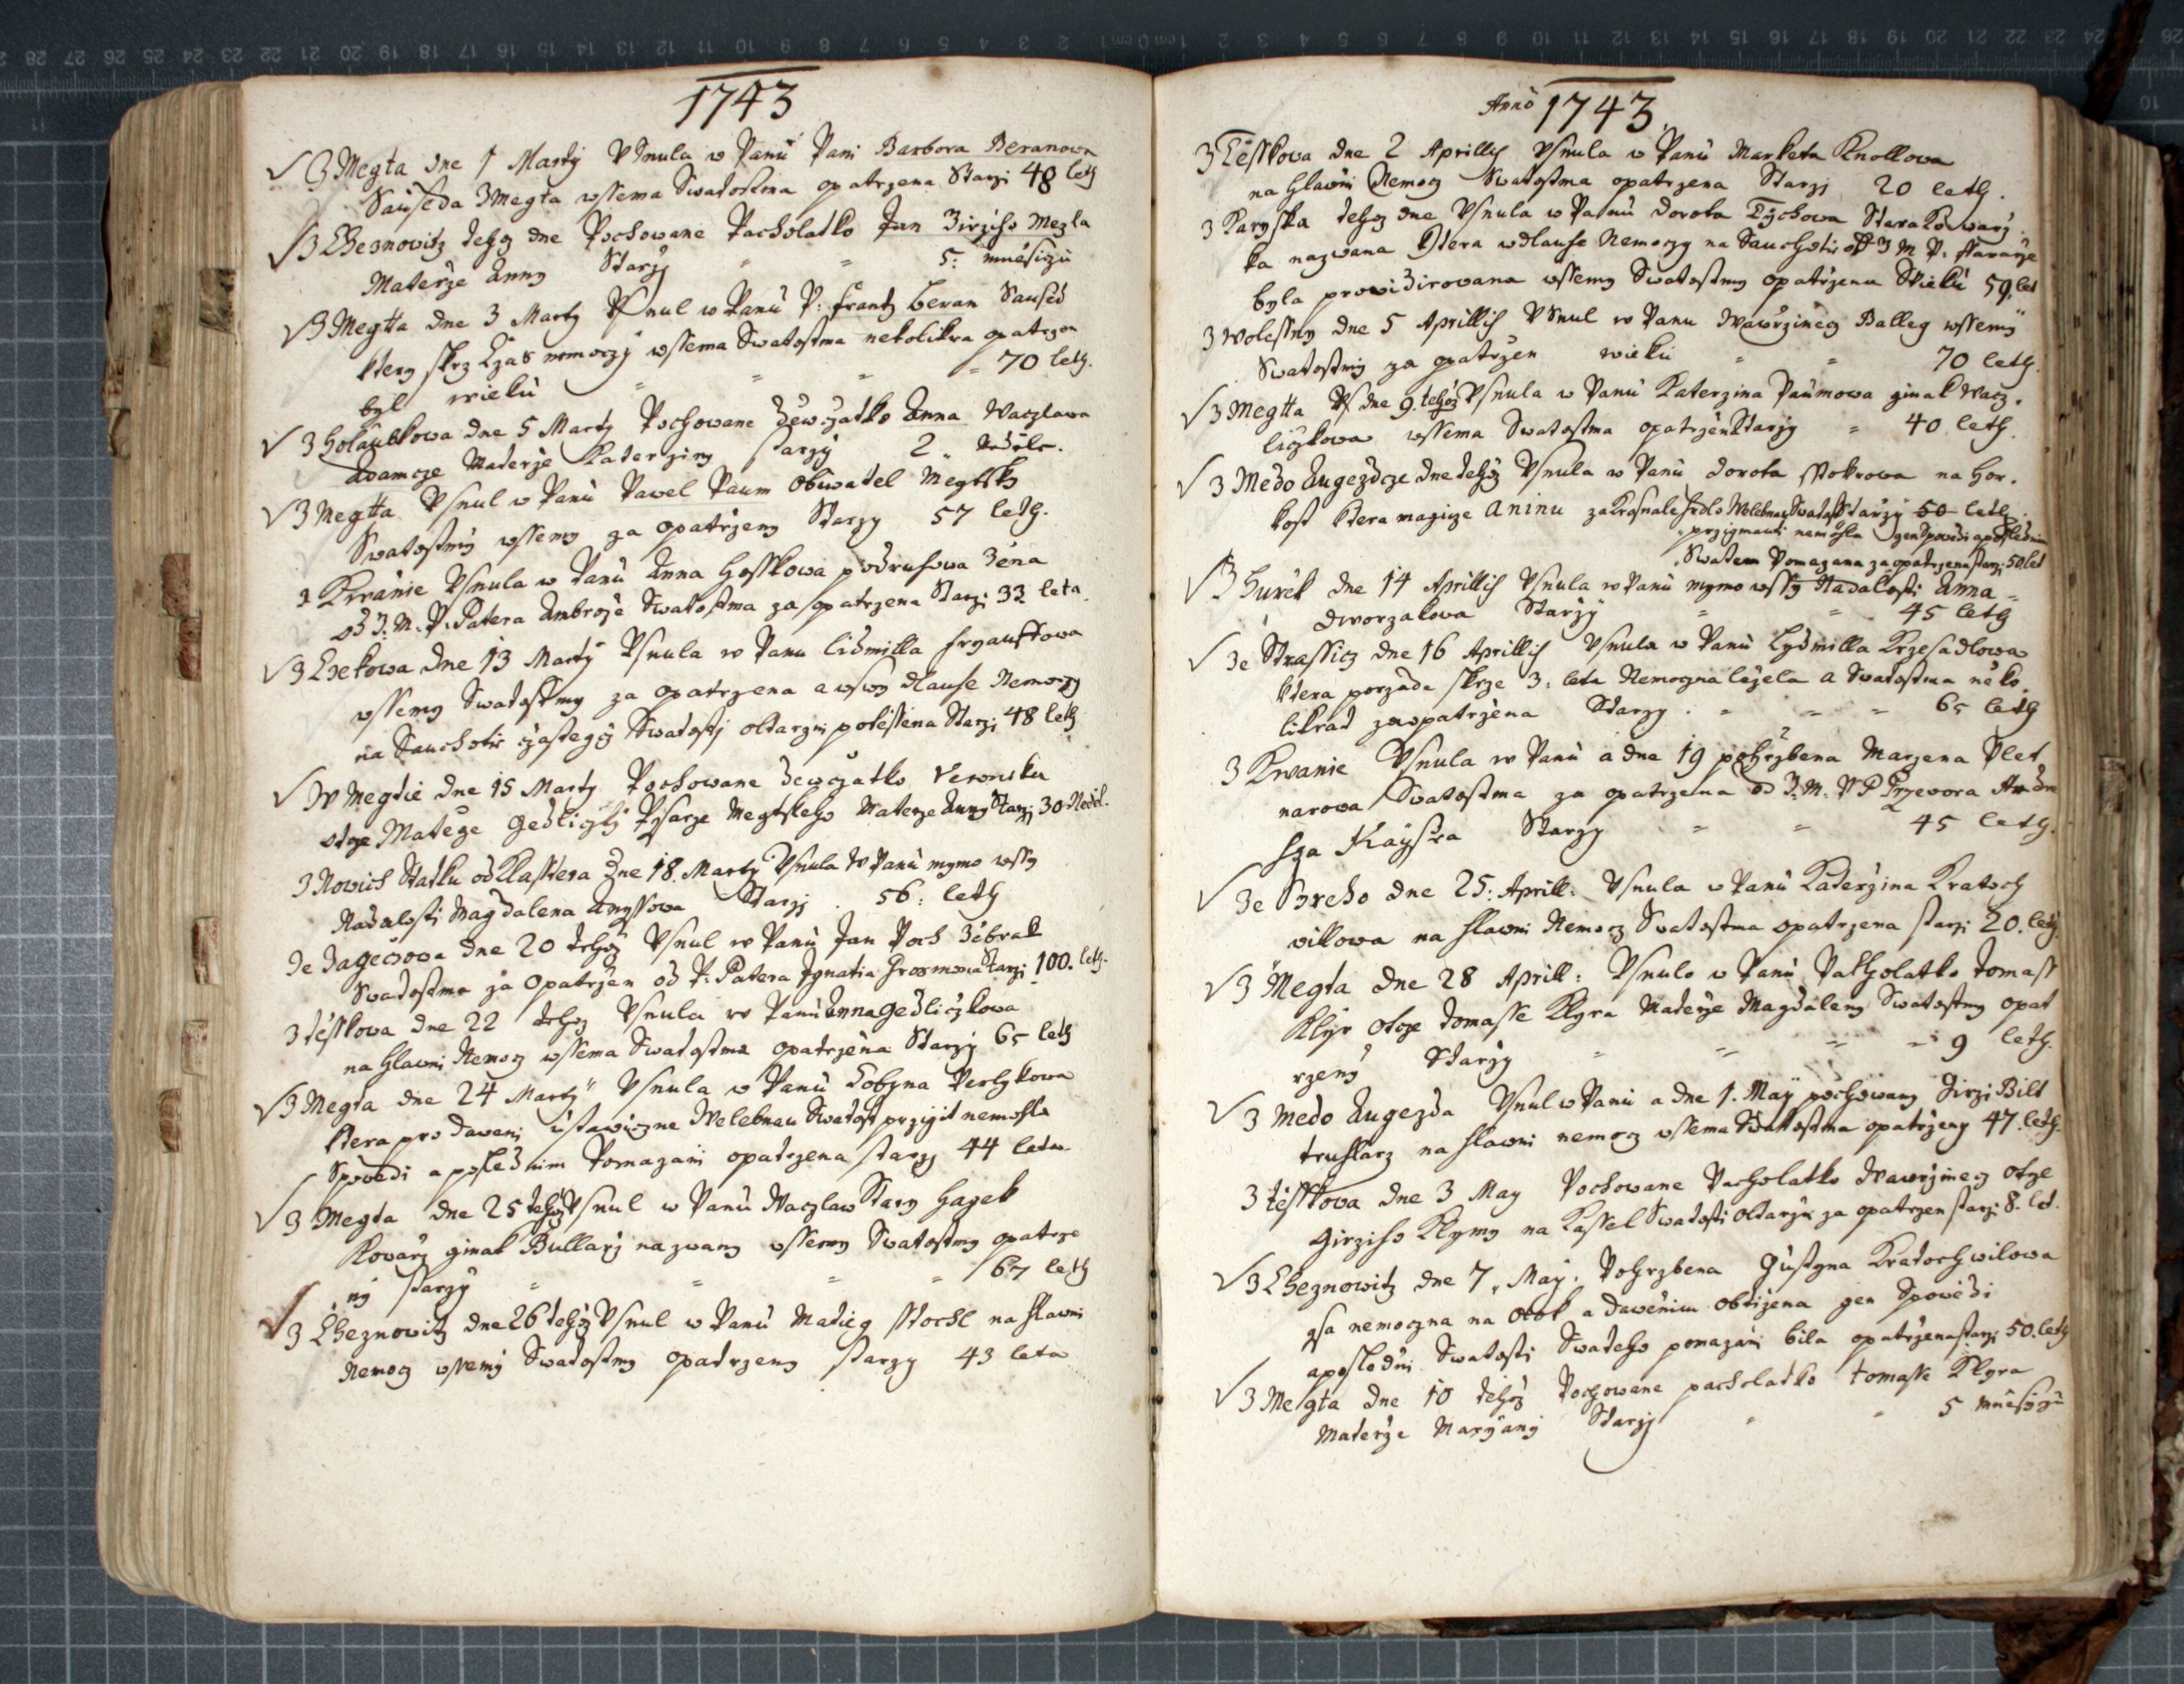 1743
Z Megta dne 1 Marty Vsnula w Panu Pani Barbora Beranowa
Sauseda z Megta wssema Swatostma opatrzena Starzi 48 leth
Z Cheznowitz tehoz dne Pochowane Pacholatko Jan Jirziho Mezla
Materze Anny Starzy 5: mnesiczu
Z Megtta dne 3 Marty Vsnul w Panu P: Frantz Beran Saused
ktery skrz czas nemoczy wssema Swatostma nekolikra opatrzen
byl wieku 70 leth.
Z Holaubkowa dne 5 Marty Pochowane Dewczatko Anna Waczlawa
Adamcze Materze Katerziny starzy 2 Nedele.
Z Megtta Vsnul w Panu Pawel Paum Obiwatel Megtsky
Swatostmy wssemy za opatrzeny Starzy 57 leth.
z Kwanie Vsnula w Panu Anna Hosskowa podruhowa Zena
od J. M. P. Patera Ambroze Swatostma za opatrzena Starzi 33 leta
Z Czekowa dne 13 Marty Vsnula w Panu Lidmilla
wssemy Swatostmy za opatrzena a w swy dlauhe Nemoczy
na Sauchotie czastegy Swatosti oltarzni potessena Starzi 48 leth
W Megtie dne 15 Marty Pochowane Dewczatko Veronika
otcze Matege Gedliczky Pysarze Megtskeho Materze Anny Starzi 30 Nedel.
Z Nowich Statku od Klasstera Dne 18. Marty Vsnula W Panu mymo wssy
Nadalosti Magdalena Starzi . 56: leth
Ze Zageczowa dne 20 tehoz Vsnul w Panu Jan Poch Zebrak
Swatostma za Opatrzen od P: Patera Ignatia Starzi 100. leth.
Z tesskowa dne 22 tehoz Vsnula w Panu Anna Gedliczkowa
na Hlawni Nemocz wssema Swatostma opatrzena Starzy 65 leth
Z Megta dne 24 Marty Vsnula w Panu Dobyna Perlykowa
ktera pro Daweni ustawiczne Welebnau Swatost przigit nemohla
Spowedi a poslednim Pomazani opatrzena starzy 44 leta
Z Megta dne 25 tehoz Vsnul w Panu Waczlaw Stary Hagek
Kowarz ginak Bullarz nazwany wssemy Swatostmy opatrze
ny starzy 67 leth
Z Cheznowitz dne 26 tehoz Vsnul w Panu Matieg Stochl na hlawni
Nemocz wssemy Swatostmy opatrzeny starzy 43 leta
Anno 1743
Z Tesskowa dne 2 Aprillis Vsnula w Panu Marketa Knollowa
na Hlawni Nemocz Swatostma opatrzena Starzj 20 leth.
Z Karyska tehoz dne Vsnula w Panu Dorota Tychowa Stara Kowarz
ka nazwana ktera w dlauhe Nemoczy na Sauchotie od J M P:
byla prowidirowana wssemy Swatostmy opatrzena Wieku 59 let
Z Wolessny dne 5 Aprillis Vsnul w Panu Wawrzinecz Balleg wssemy
Swatostmy za opatrzen wieku 70 leth.
Z Megtta dne 9. tehoz Vsnula w Panu Katerzina Paumowa ginak Wacz.
liczkowa wssema Swatostma opatrzena Starzy 40 leth.
Z Medo Augezdcze dne tehoz Vsnula w Panu Dorota Stokrowa na Hor.
kost ktera magicze Aninu Welebnau Swatost Starzy 50 leth
przigmauti nemohla gen Spowedi a poslednim
Swatem Pomazana za opatrzena starzi 50 let
Z Hurek dne 14 Aprillis Vsnula w Panu mymo wssy Nadalosti Anna
Dworzakowa Starzy 45 leth
Ze Strassicz dne 16 Aprillis Vsnula w Panu Lydmilla Krzesadlowa
ktera porzade skrze 3: leta Nemoczna lezela a Swatostma neko
likrat zaopatrzena Starzy . 65 leth
Z Kwanie Vsnula w Panu a dne 19 pohrzbena Marzena Plet
narowa Swatostma za opatrzena od J. M. V P Przewora
Starzy 45 leth.
Ze Sbreho dne 25: Aprill: Vsnula w Panu Katerzina Kratoch
wilowa na hlawni Nemocz Swatostma opatrzena starzi 20. leth
Z Megta dne 28 Aprill: Vsnulo w Panu Pakholatko Tomass
Klyr otcze Tomasse Klyra Materze Magdaleny Swatostmy opat
rzeny Starzy 9 leth.
Z Medo Augezda Vsnul w Panu a dne 1. May pochowany Jirzi Bilt
truhlarz na hlawni nemocz wssema Swatostma opatrzeny 47. leth.
Z tesskowa dne 3 May Pochowane Pacholatko Wawrzinecz otcze
Girziho Klymy na Kassel Swatosti oltarzni za opatrzen starzi 8. let.
Z Cheznowitz dne 7. May. Pohrzbena Justyna Kratochwilowa
gsa nemoczna na Otok a dawenim obtizena gen Spowedi
a posledni Swatosti Swateho pomazani bila opatrzena starzi 50. leth
Z Megta dne 10 tehoz Pochowane pacholatko Tomasse Klyra
Materze Maryany Starzy 5 mnesiczu